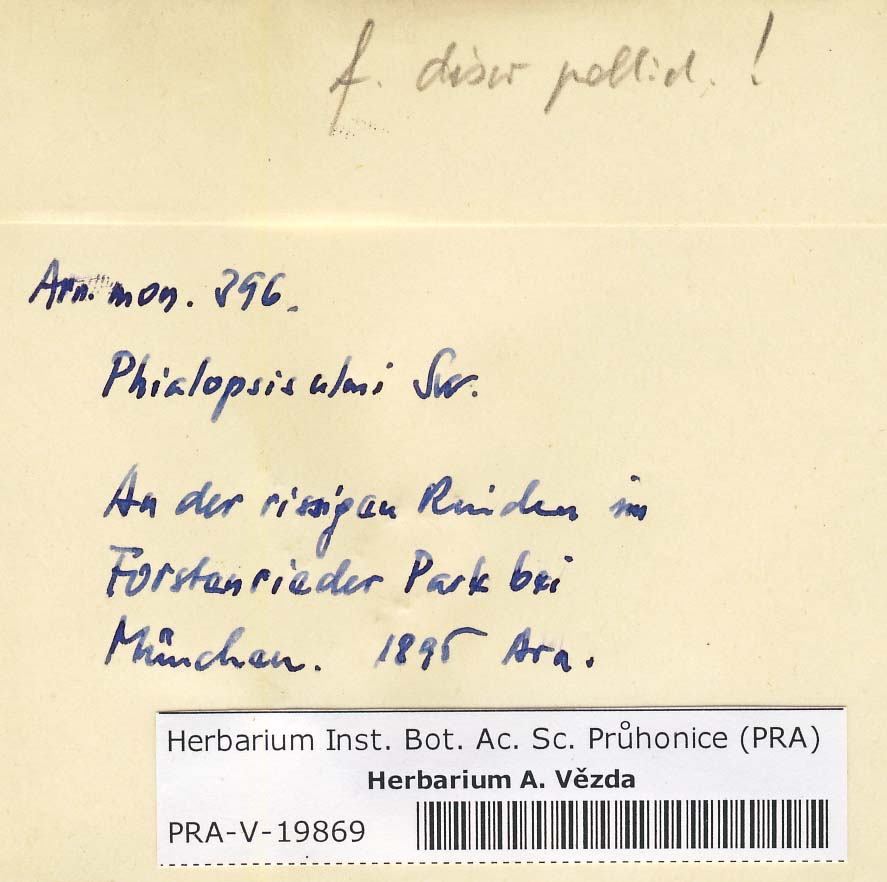 f. disco pallid. !
Arn. mon. 396.
Phialopsis ulmi Sw.
An der rissigen Rinden im
Forstenrieder Park bei
München. 1895 Arn.
Herbarium Inst. Bot. Ac. Sc. Průhonice (PRA)
Herbarium A. Vězda
PRA-V-19869